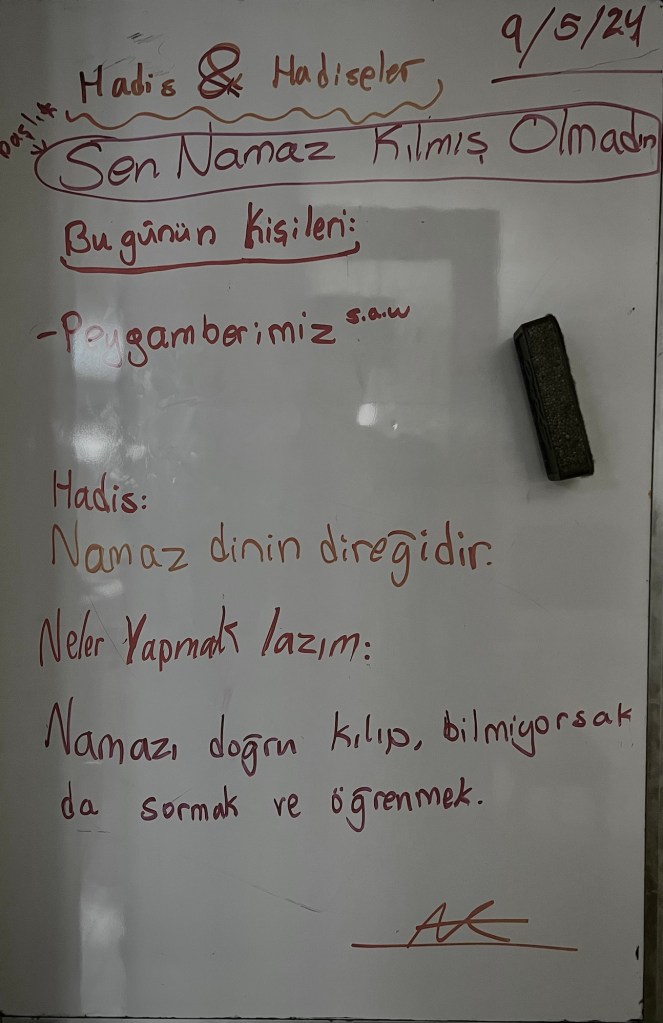 9/5/24
Hadis & Hadiseler
başlık
Sen Namaz Kılmış Olmadın
Bu günün Kişileri:
- Peygamberimiz s.a.w
Hadis:
Namaz dinin direğidir.
Neler Yapmak lazım:
Namazı doğru kılıp, bilmiyorsak
da sormak ve öğrenmek.
AK